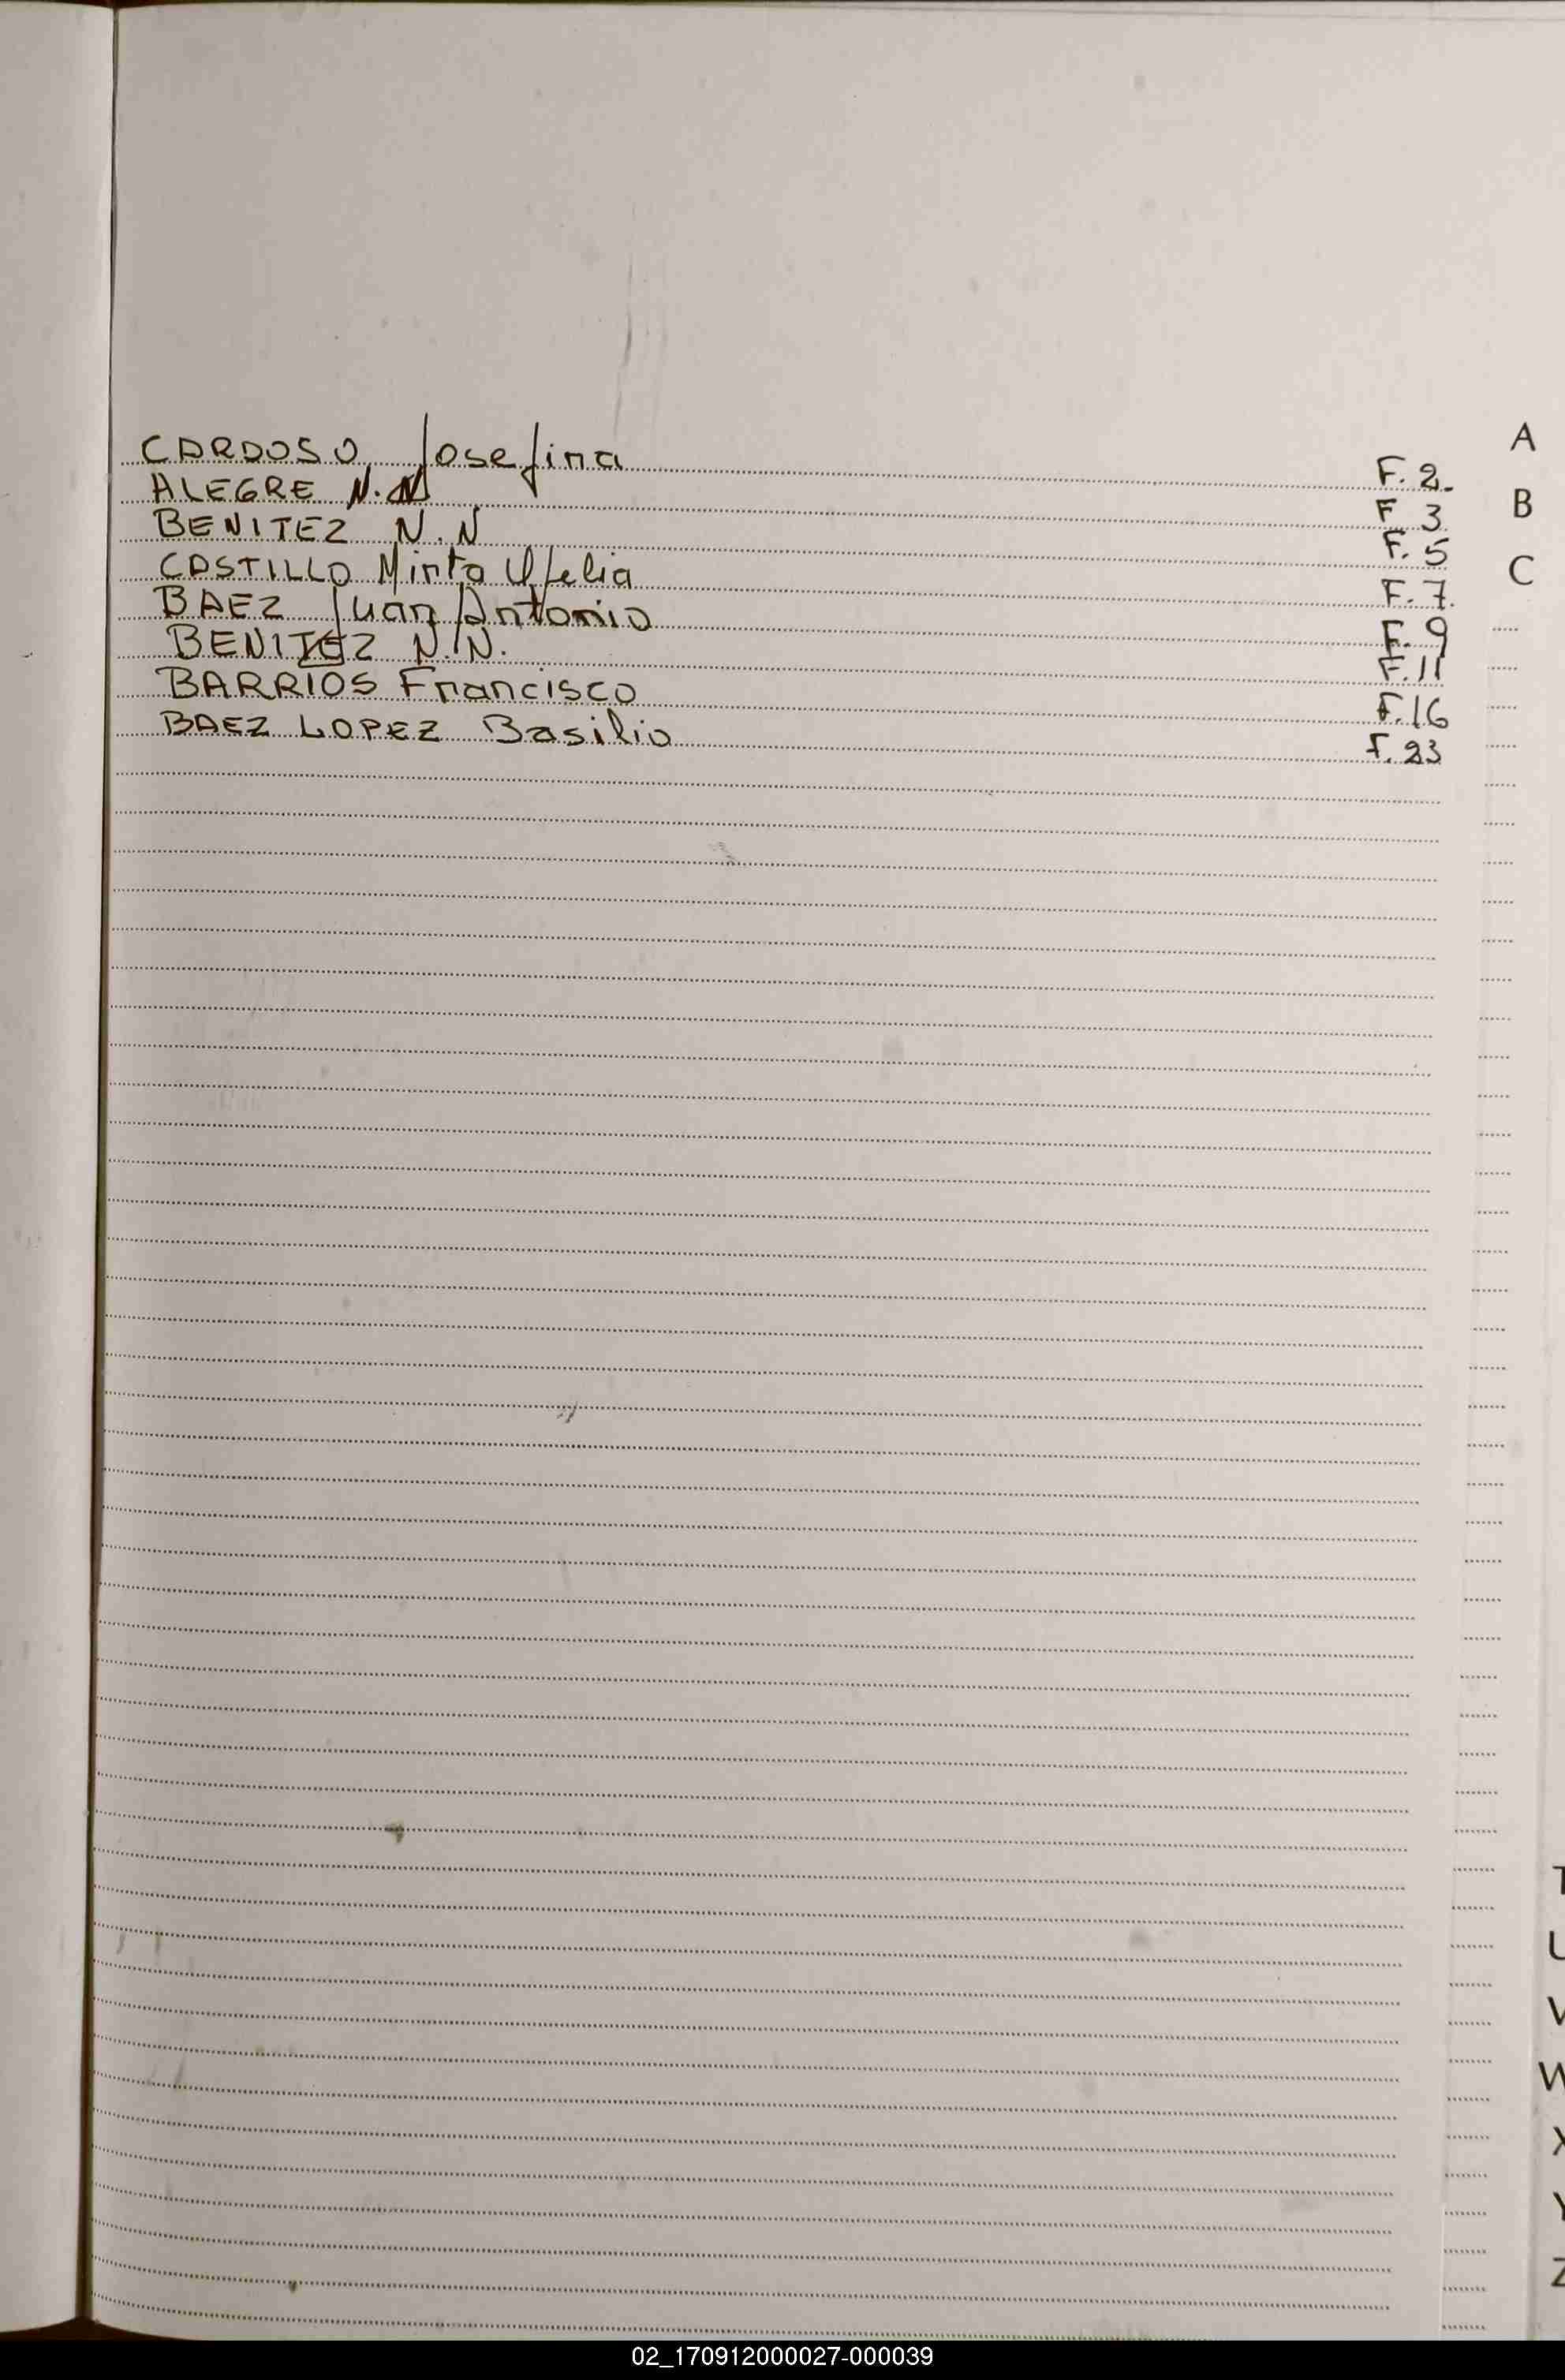 CARDOSO Josefina F. 2.
ALEGRE N.N F 3
BENITEZ N.N F. 5
CASTILLO Mirta Ofelia F. 7.
BAEZ Juan Antonio F. 9
BENITEZ N.N. F. 11
BARRIOS Francisco F. 16
BAEZ LOPEZ Basilio F. 23
A
B
C
T
U
V
W
X
Y
Z
02_170912000027-000039